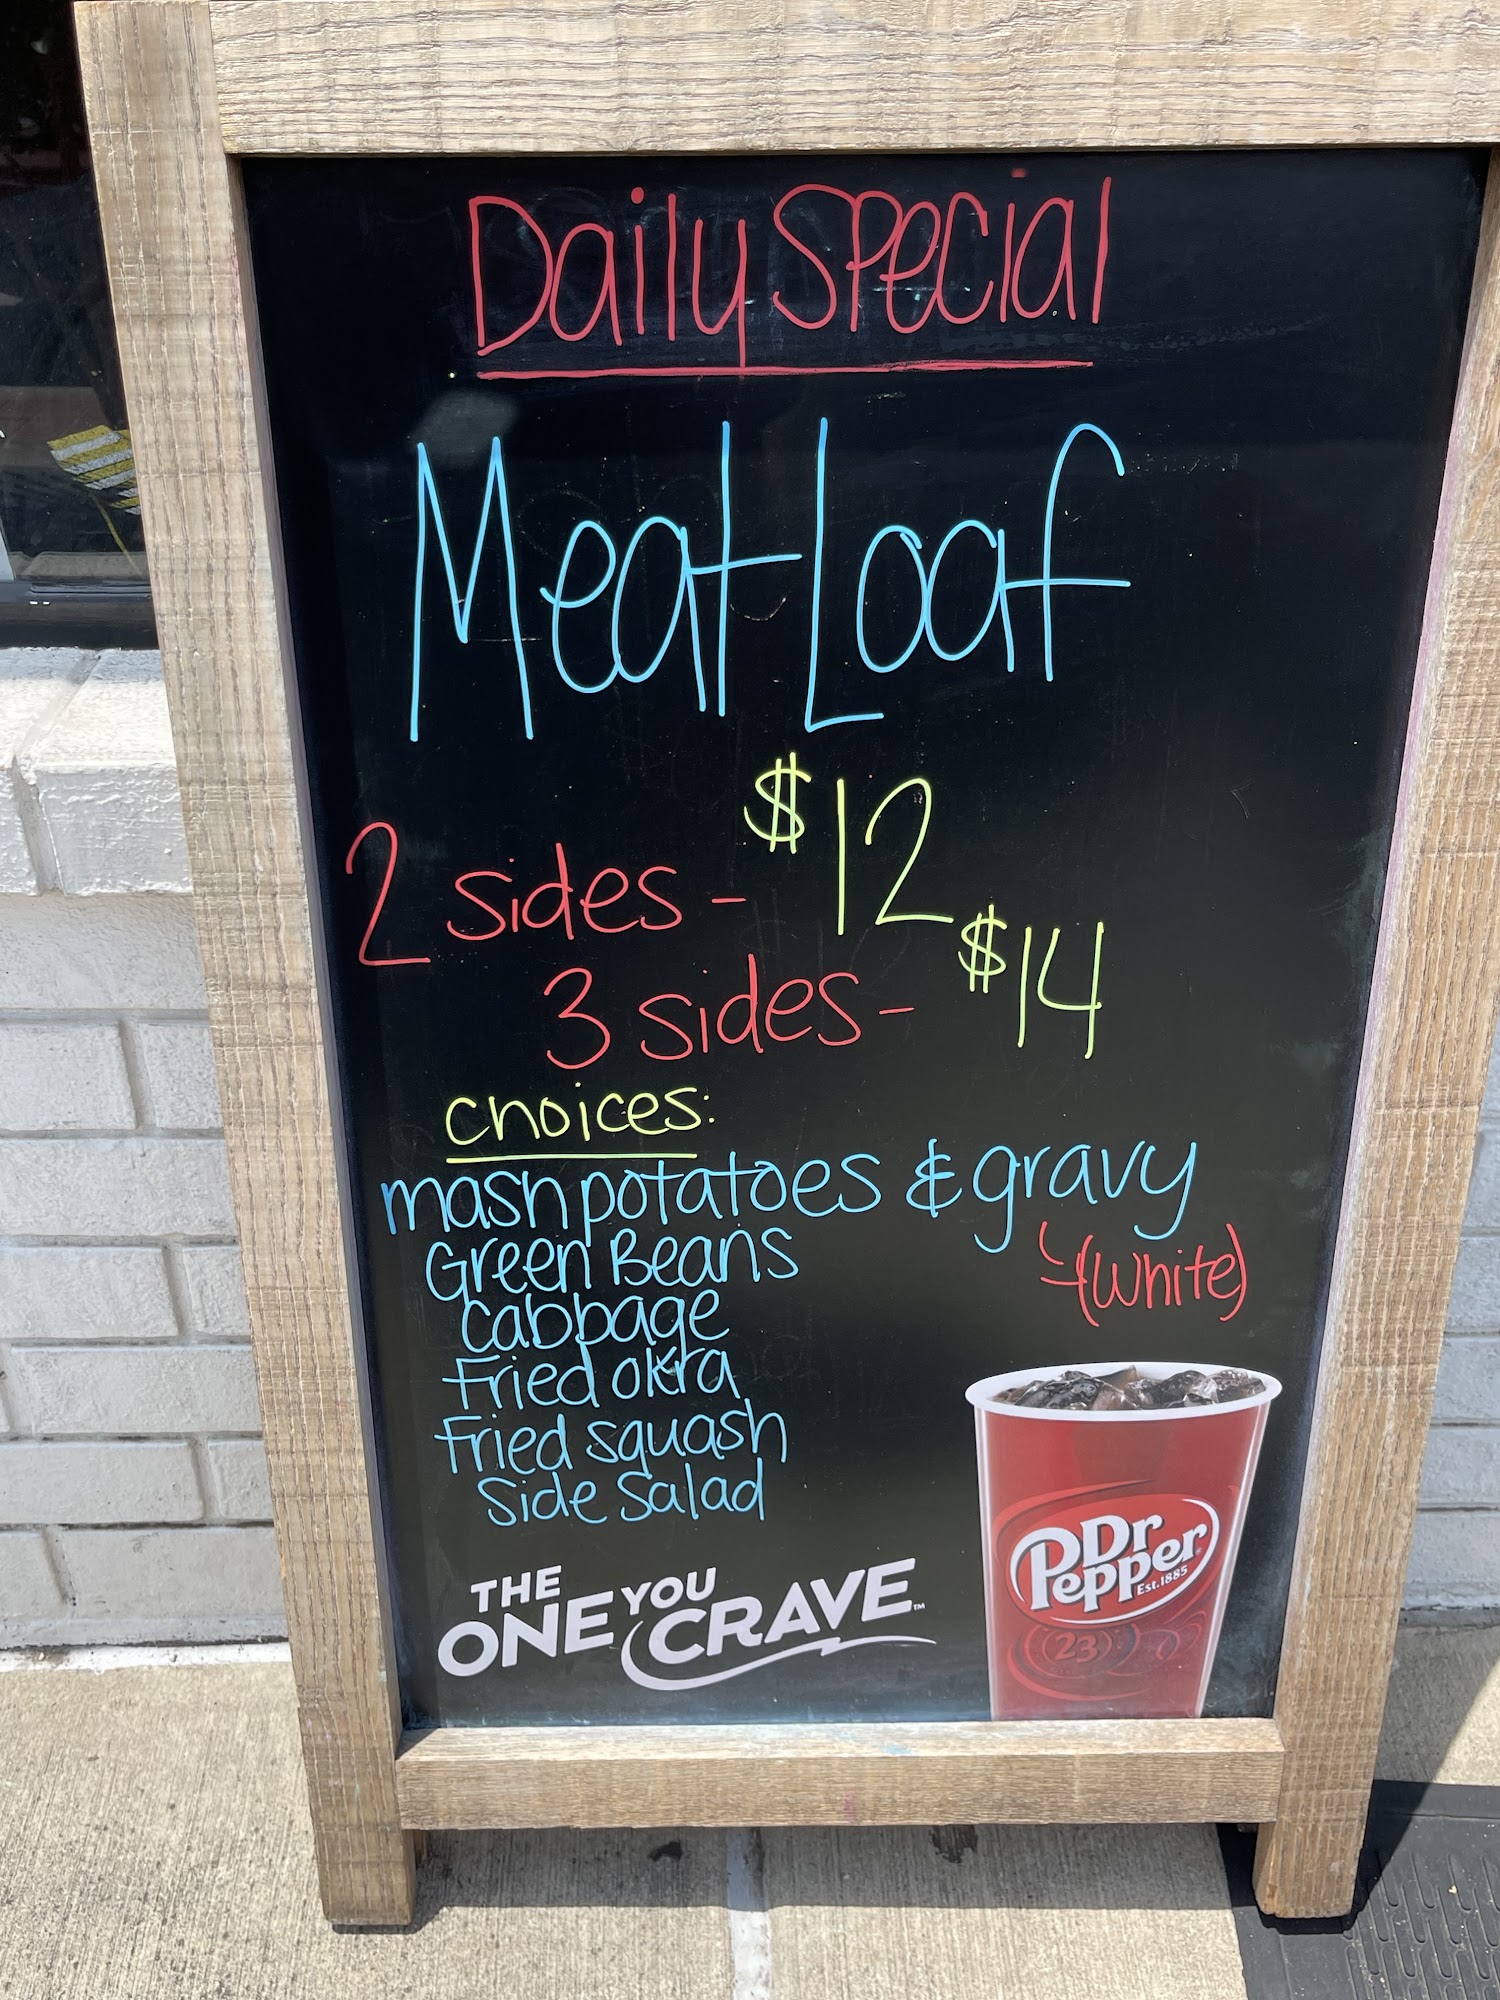 Daily Special
Meat Loaf
2 sides - $12
3 sides - $14
choices:
mash potatoes & gravy
(white)
Green Beans
cabbage
Fried okra
Fried squash
Side Salad
THE
ONE YOU
CRAVE™
Dr
Pepper
Est. 1885
23